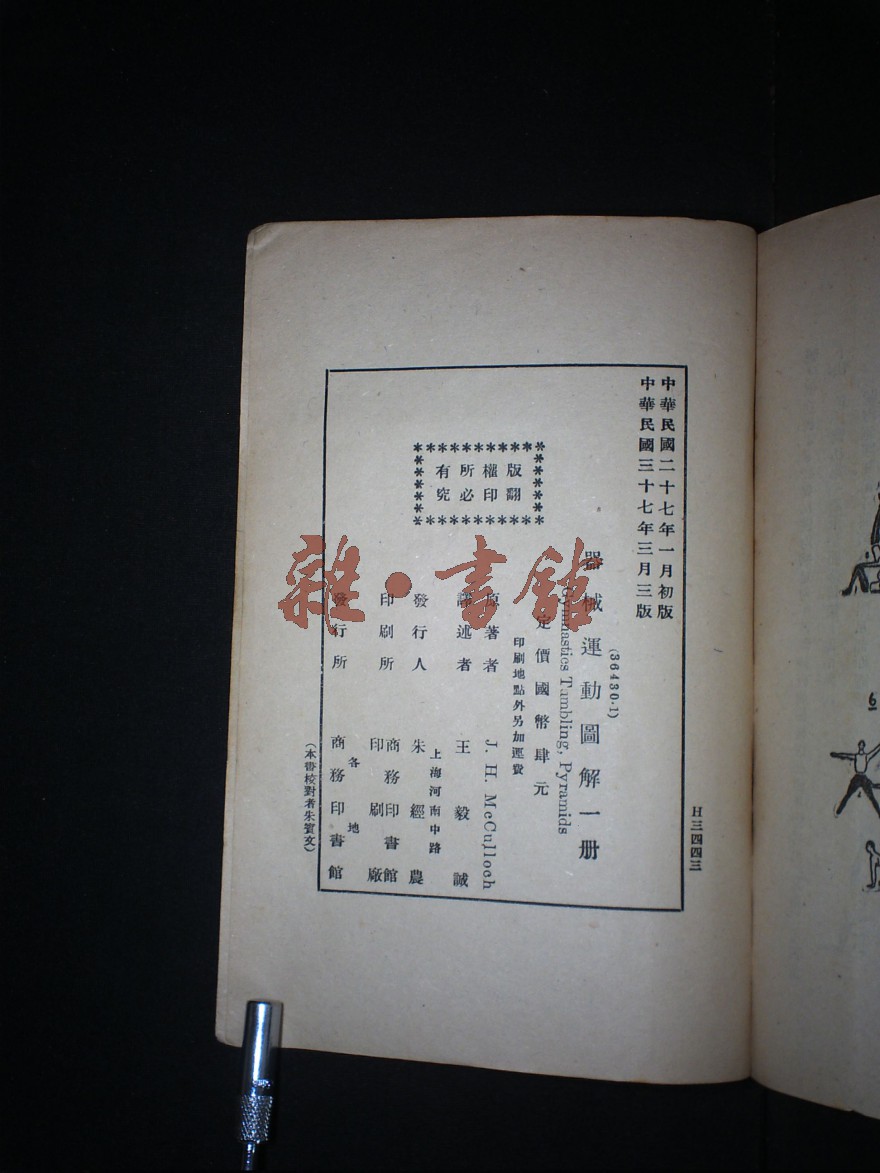 中華民國二十七年一月初版
中華民國三十七年三月三版
(36430·1)
器械運動圖解一册
Gymnastics Tumbling, Pyramids
定價國幣肆元
印刷地點外另加運費
版權所有
翻印必究
原著者 J. H. McCulloch
譯述者 王毅誠
發行人 朱經農
上海河南中路
印刷所 商務印書館印刷廠
發行所 各地商務印書館
(本書校對者朱寳文)
H三四四三
雜·書館
6